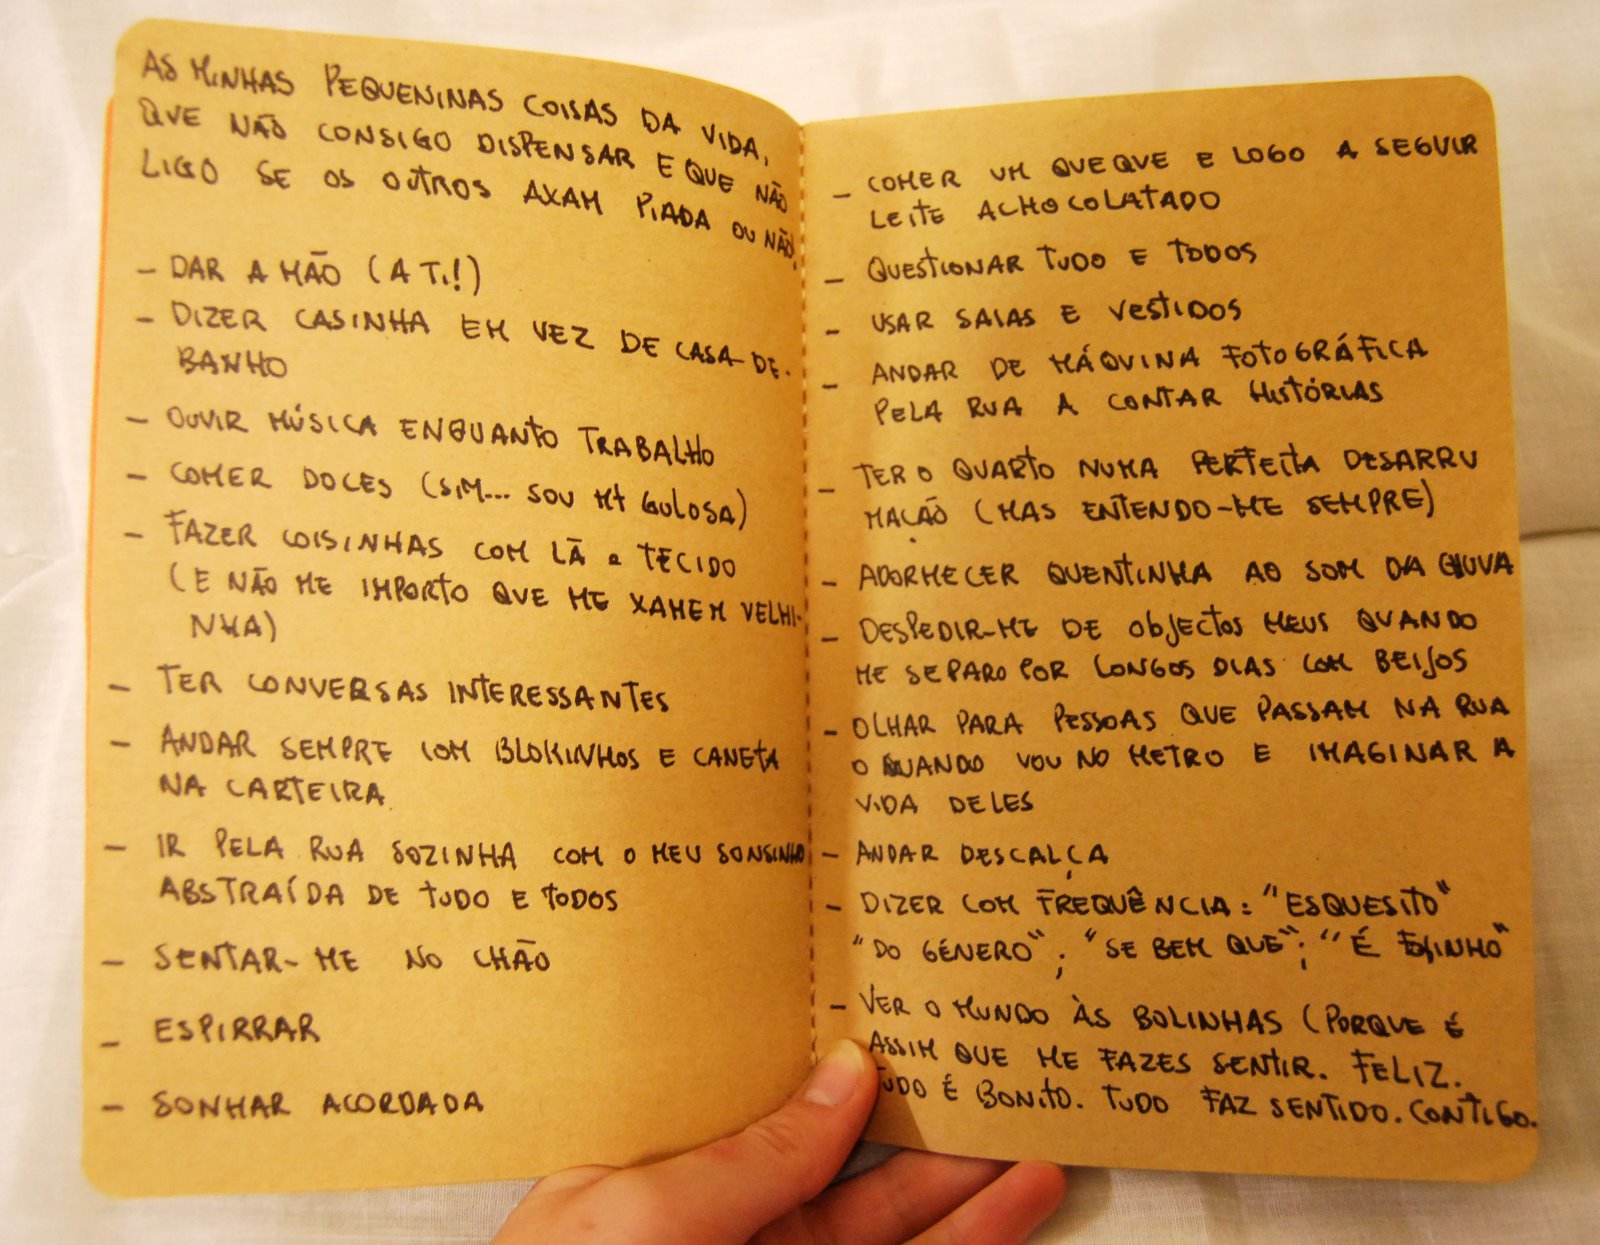 AS MINHAS PEQUENINAS COISAS DA VIDA,
QUE NÃO CONSIGO DISPENSAR E QUE NÃO
LIGO SE OS OUTROS AXAM PIADA OU NÃO.
– DAR A MÃO (A TI!)
– DIZER CASINHA EM VEZ DE CASA-DE-
BANHO
– OUVIR MÚSICA ENQUANTO TRABALHO
– COMER DOCES (SIM... SOU MT GULOSA)
– FAZER COISINHAS COM LÃ e TECIDO
(E NÃO ME IMPORTO QUE ME XAMEM VELHI-
NHA)
– TER CONVERSAS INTERESSANTES
– ANDAR SEMPRE COM BLOKINHOS E CANETA
NA CARTEIRA
– IR PELA RUA SOZINHA COM O MEU SONSINHO
ABSTRAÍDA DE TUDO E TODOS
– SENTAR-ME NO CHÃO
– ESPIRRAR
– SONHAR ACORDADA
– COMER UM QUEQUE E LOGO A SEGUIR
LEITE ACHOCOLATADO
– QUESTIONAR TUDO E TODOS
– USAR SAIAS E VESTIDOS
– ANDAR DE MÁQUINA FOTOGRÁFICA
PELA RUA A CONTAR HISTÓRIAS
– TER O QUARTO NUMA PERFEITA DESARRU
MAÇÃO (MAS ENTENDO-ME SEMPRE)
– ADORMECER QUENTINHA AO SOM DA CHUVA
– DESPEDIR-ME DE OBJECTOS MEUS QUANDO
ME SEPARO POR LONGOS DIAS COM BEIJOS
– OLHAR PARA PESSOAS QUE PASSAM NA RUA
O QUANDO VOU NO METRO E IMAGINAR A
VIDA DELES
– ANDAR DESCALÇA
– DIZER COM FREQUÊNCIA: "ESQUESITO"
"DO GÉNERO"; "SE BEM QUE"; "É FOFINHO"
– VER O MUNDO ÀS BOLINHAS (PORQUE É
ASSIM QUE ME FAZES SENTIR. FELIZ.
TUDO É BONITO. TUDO FAZ SENTIDO. CONTIGO.